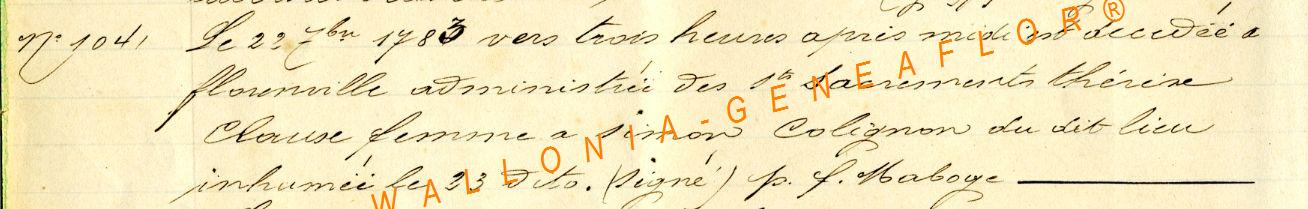 N° 1041 Le 22 7bre 1783 vers trois heures après midi est decedée a
florenville administrée des Sts Sacrements thérèse
Clause femme a simon Colignon du dit lieu
inhumée le 23 dito. (signé) p. f. Maboge
WALLONIA-GENEAFLOR®